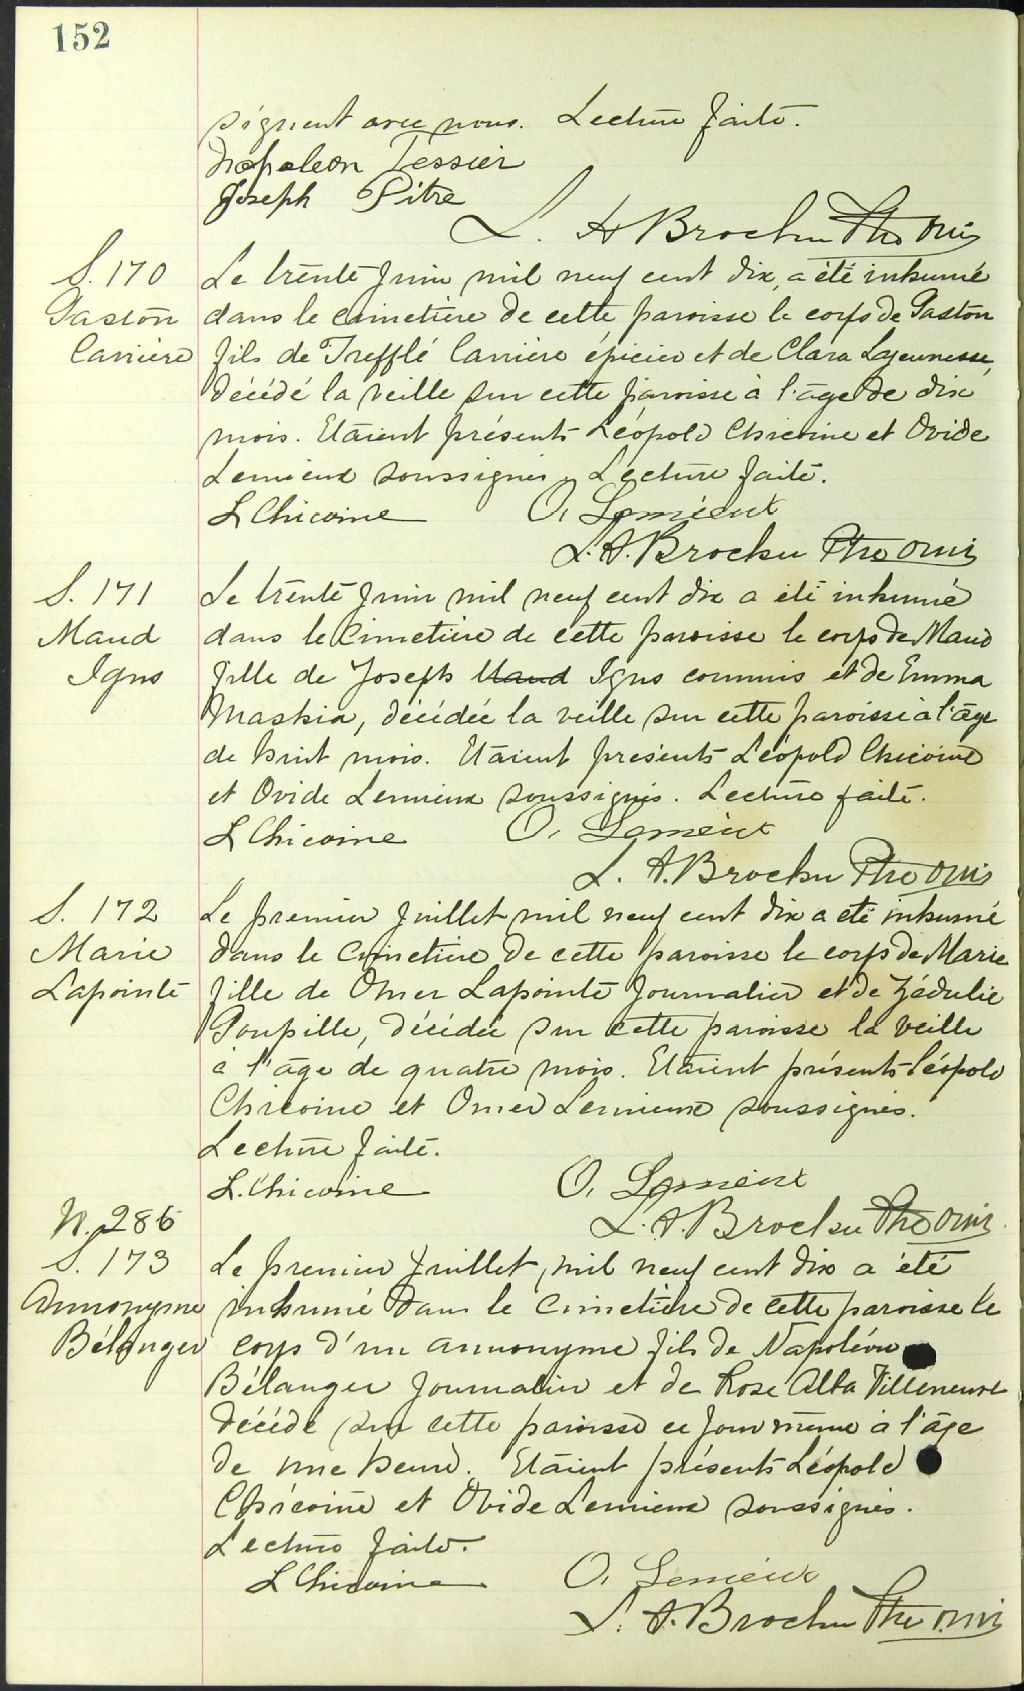 152
signent avec nous. Lecture faite.
Napoleon Tessier
Joseph Pitre
L. A Brochu Ptre OMI
S. 170 Le trente Juin mil neuf cent dix, a été inhumé
Gaston dans le cimetière de cette paroisse le corps de Gaston
Carrière fils de Trefflé Carrière épicier et de Clara Lajeunesse,
décédé la veille sur cette paroisse à l'âge de dix
mois. Etaient présents Léopold Chicoine et Ovide
Lemieux soussignés. Lecture faite.
L Chicoine O. Lemieux
L. A. Brochu Ptre OMI
S. 171 Le trente Juin mil neuf cent dix a été inhumé
Maud dans le cimetière de cette paroisse le corps de Maud
Igns fille de Joseph Maud Igns commis et de Emma
décédée la veille sur cette paroisse à l'âge
de huit mois. Etaient présents Léopold Chicoine
et Ovide Lemieux soussignés. Lecture faite.
L Chicoine O. Lemieux
L. A. Brochu Ptre OMI
S. 172 Le premier Juillet mil neuf cent dix a été inhumé
Marie dans le cimetière de cette paroisse le corps de Marie
Lapointe fille de Omer Lapointe Journalier et de Zédulie
Poupille, décédée sur cette paroisse la veille
à l'âge de quatre mois. Etaient présents Léopold
Chicoine et Omer Lemieux soussignés.
Lecture faite.
L. Chicoine O. Lemieux
L. A. Brochu Ptre OMI.
N. 286
S. 173 Le premier Juillet, mil neuf cent dix a été
Annonyme inhumé dans le cimetière de cette paroisse le
Bélanger corps d'un annonyme fils de Napoléon
Bélanger Journalier et de Rose Alba Villeneuve
décédé sur cette paroisse ce jour même à l'âge
de une heure. Etaient présents Léopold
Chicoine et Ovide Lemieux soussignés.
Lecture faite.
L Chicoine O. Lemieux
L. A. Brochu Ptre OMI